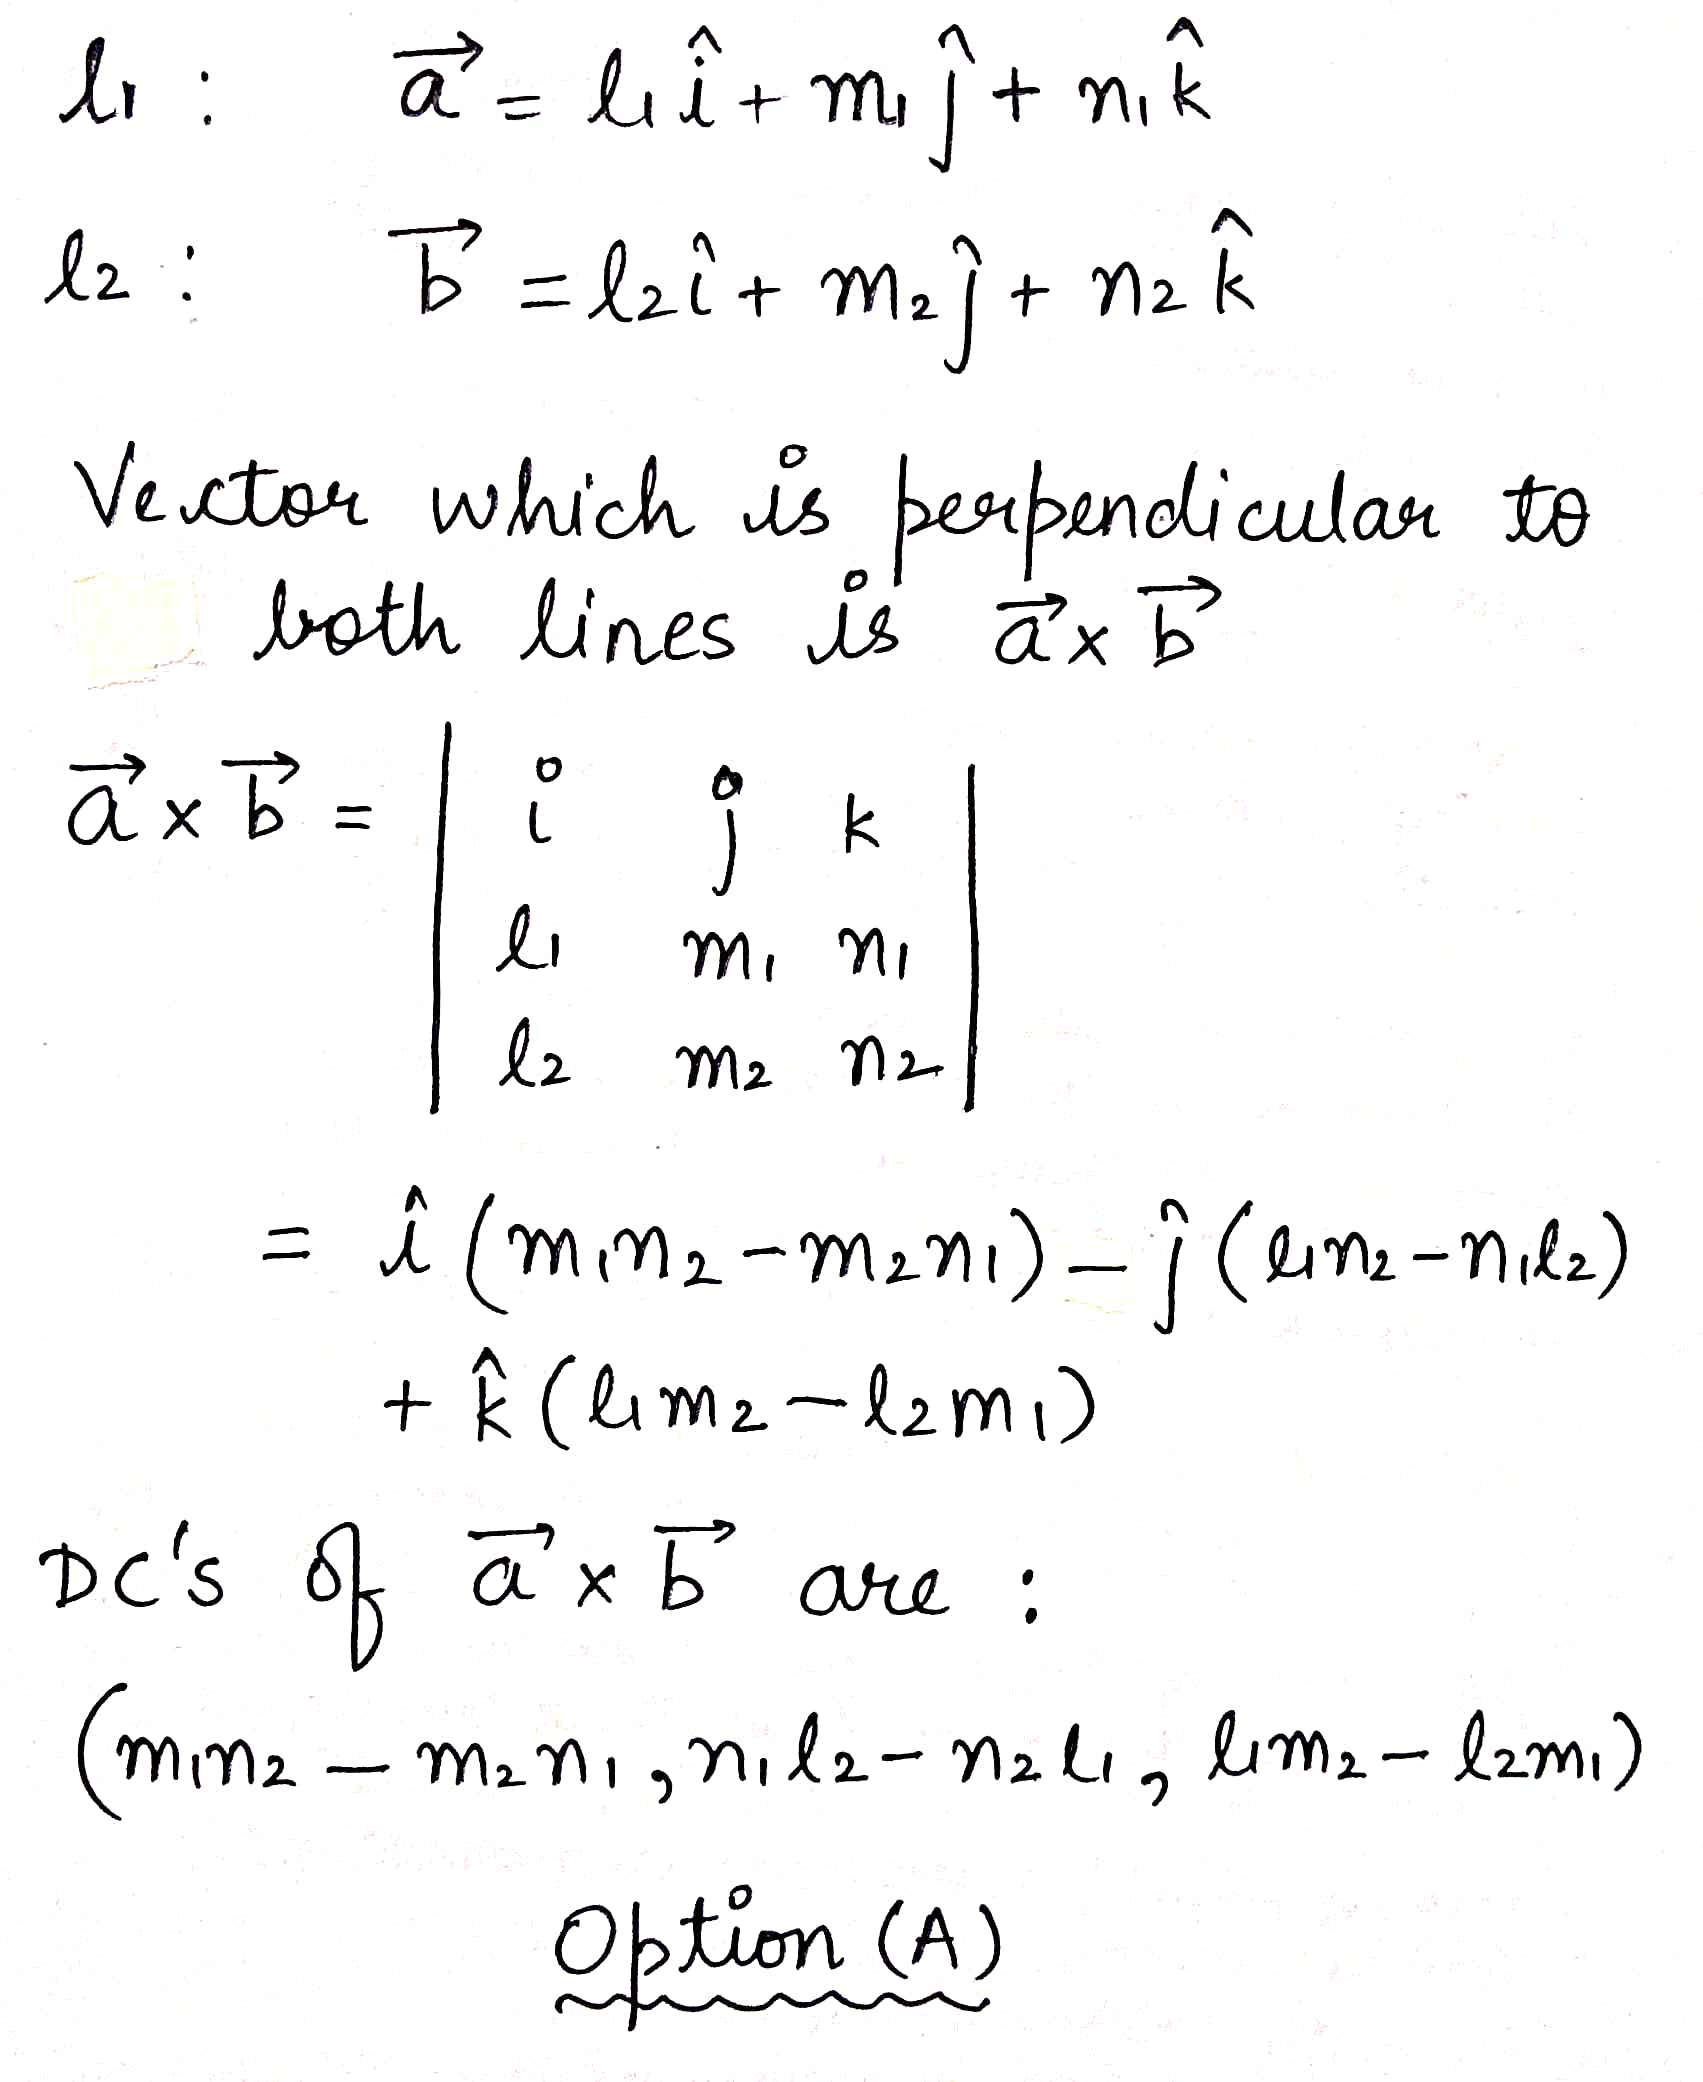 l1 : a⃗ = l1 î + m1 ĵ + n1 k̂
l2 : b⃗ = l2 î + m2 ĵ + n2 k̂
Vector which is perpendicular to
both lines is a⃗ x b⃗
a⃗ x b⃗ = | i j k |
| l1 m1 n1 |
| l2 m2 n2 |
= î (m1n2 - m2n1) - ĵ (l1n2 - n1l2)
+ k̂ (l1m2 - l2m1)
DC's of a⃗ x b⃗ are :
(m1n2 - m2n1, n1l2 - n2l1, l1m2 - l2m1)
Option (A)